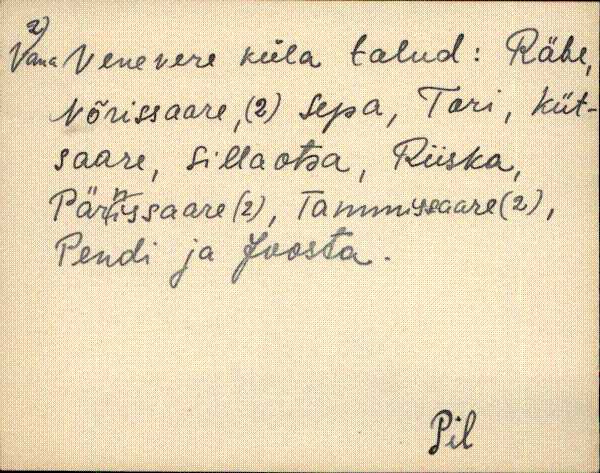 2)
Vana Venevere küla talud: Räbe,
Nõrissaare, (2) Sepa, Tori, Küt-
saare, Sillaotsa, Riiska,
Pärnissaare (2), Tammissaare (2),
Pendi ja Joosta.
Pil